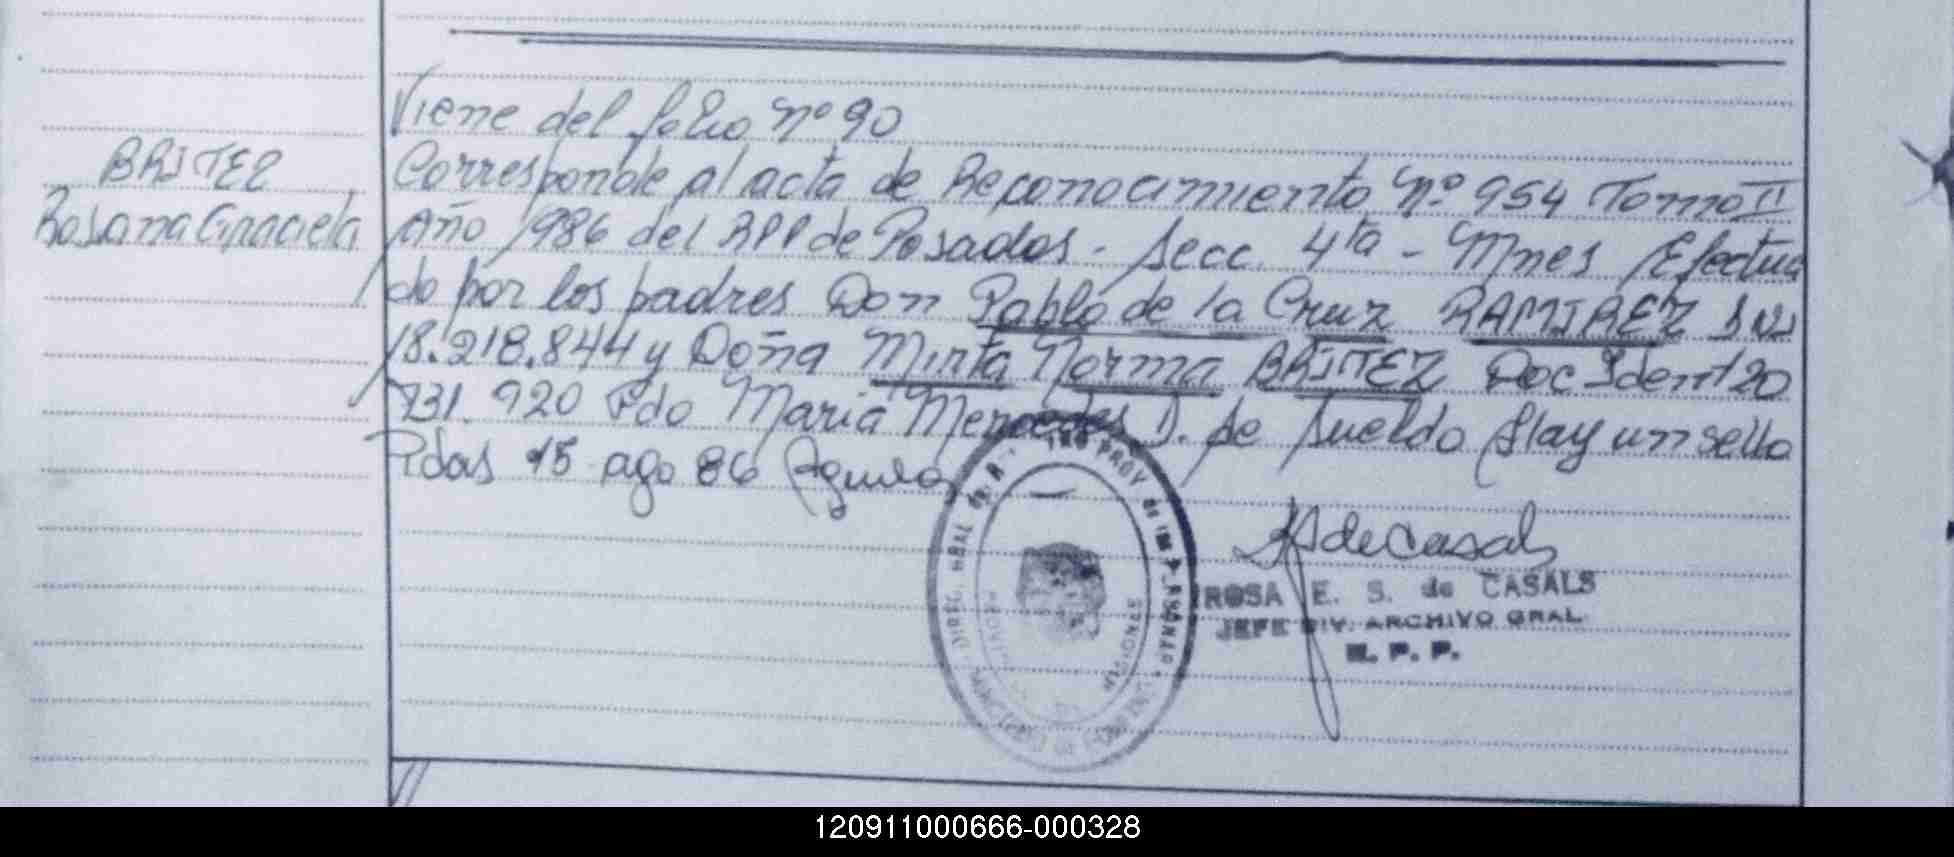 Viene del folio Nº 90
BRITEZ
Rosana Graciela
Corresponde al acta de Reconocimiento Nº 954 Tomo II
Año 1986 del RPP de Posadas - Secc. 4ta - Mnes Efectua
do por los padres Don Pablo de la Cruz RAMIREZ
18.218.844 y Doña Mirta Norma BRITEZ Doc Ident 20
731.920 Fdo Maria Mercedes D. de Sueldo Hay un sello
Pdas 15 ago 86
ROSA E. S. de CASALS
JEFE DIV. ARCHIVO GRAL
R. P. P.
120911000666-000328